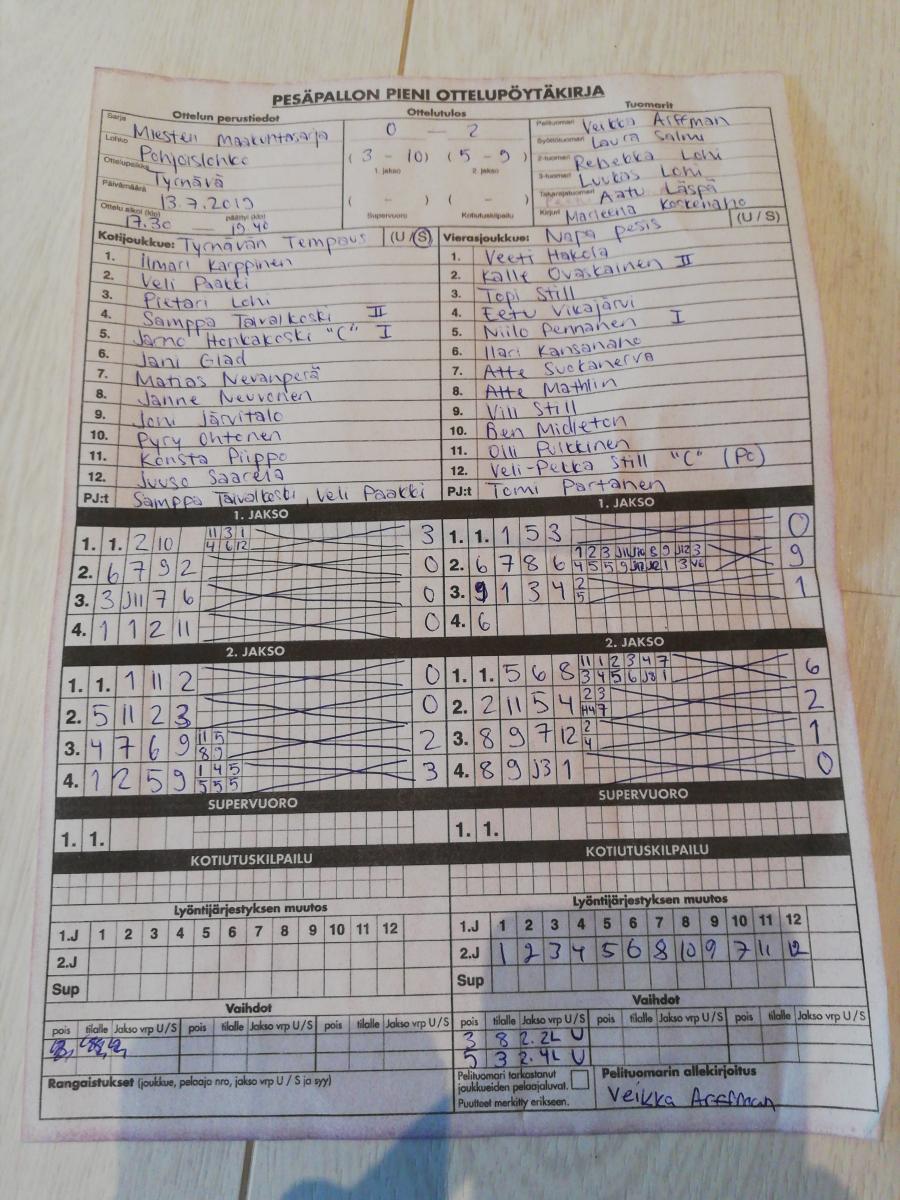 PESÄPALLON PIENI OTTELUPÖYTÄKIRJA
Ottelun perustiedot
Sarja Miesten maakuntasarja
Lohko Pohjoislohko
Ottelupaikka Tyrnävä
Päivämäärä 13.7.2019
Ottelu alkoi (klo) 17.30 — päättyi (klo) 19.40
Ottelutulos
0 — 2
(3 - 10) (5 - 9)
1. jakso 2. jakso
( - ) ( - )
Supervuoro Kotiutuskilpailu
Tuomarit
Pelituomari Veikka Arffman
Syöttötuomari Laura Salmi
2-tuomari Rebekka Lohi
3-tuomari Luukas Lohi
Takarajatuomari Aatu Läspä
Kirjuri Marleena Koskenaho
Kotijoukkue: Tyrnävän Tempaus (U / S)
1. Ilmari Karppinen
2. Veli Paakki
3. Pietari Lohi
4. Samppa Taivalkoski II
5. Jarno Honkakoski "C" I
6. Jani Glad
7. Matias Nevanperä
8. Janne Neuvonen
9. Joni Järvitalo
10. Pyry Ohtonen
11. Konsta Piippo
12. Juuso Saarela
PJ:t Samppa Taivalkoski, Veli Paakki
Vierasjoukkue: Napa pesis (U / S)
1. Veeti Hakola
2. Kalle Ovaskainen II
3. Topi Still
4. Eetu Vikajärvi
5. Niilo Pennanen I
6. Ilari Kansanaho
7. Atte Suokanerva
8. Atte Mathlin
9. Vili Still
10. Ben Midleton
11. Olli Pulkkinen
12. Veli-Pekka Still "C" (Pc)
PJ:t Tomi Partanen
1. JAKSO
1. 1. 2 10 11 3 1 3
4 6 12
2. 6 7 9 2 0
3. 3 J11 7 6 0
4. 1 1 2 11 0
2. JAKSO
1. 1. 1 11 2 0
2. 5 11 2 3 0
3. 4 7 6 9 11 5 2
8 9
4. 1 2 5 9 1 4 5 3
5 5 5
SUPERVUORO
1. 1.
KOTIUTUSKILPAILU
Lyöntijärjestyksen muutos
1.J 1 2 3 4 5 6 7 8 9 10 11 12
2.J
Sup
Vaihdot
pois tilalle Jakso vrp U / S pois tilalle Jakso vrp U / S pois tilalle Jakso vrp U / S
Rangaistukset (joukkue, pelaaja nro, jakso vrp U / S ja syy)
1. JAKSO
1. 1. 1 5 3 0
2. 6 7 8 6 1 2 3 J11 J10 8 9 J12 3 9
4 5 5 9 1 3
3. 9 1 3 4 2 1
5
4. 6
2. JAKSO
1. 1. 5 6 8 11 1 2 3 4 7 6
3 4 5 6 J8 1
2. 2 11 5 4 2 3 2
7
3. 8 9 7 12 2 1
4
4. 8 9 J3 1 0
SUPERVUORO
1. 1.
KOTIUTUSKILPAILU
Lyöntijärjestyksen muutos
1.J 1 2 3 4 5 6 7 8 9 10 11 12
2.J 1 2 3 4 5 6 8 10 9 7 11 12
Sup
Vaihdot
pois tilalle Jakso vrp U / S pois tilalle Jakso vrp U / S pois tilalle Jakso vrp U / S
3 8 2. 2L U
5 3 2. 4L U
Pelituomari tarkastanut joukkueiden pelaajaluvat.
Puutteet merkitty erikseen.
Pelituomarin allekirjoitus
Veikka Arffman